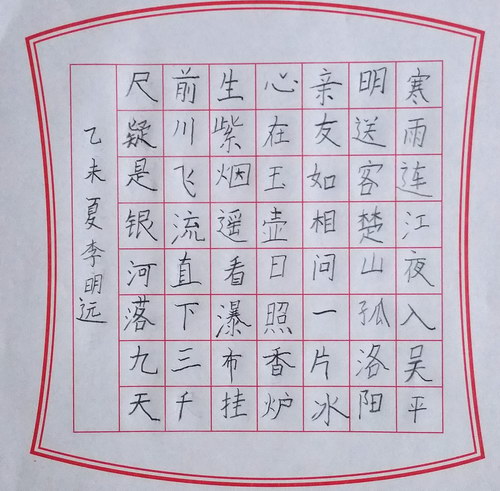 寒雨连江夜入吴平
明送客楚山孤洛阳
亲友如相问一片冰
心在玉壶日照香炉
生紫烟遥看瀑布挂
前川飞流直下三千
尺疑是银河落九天
乙未夏李明远